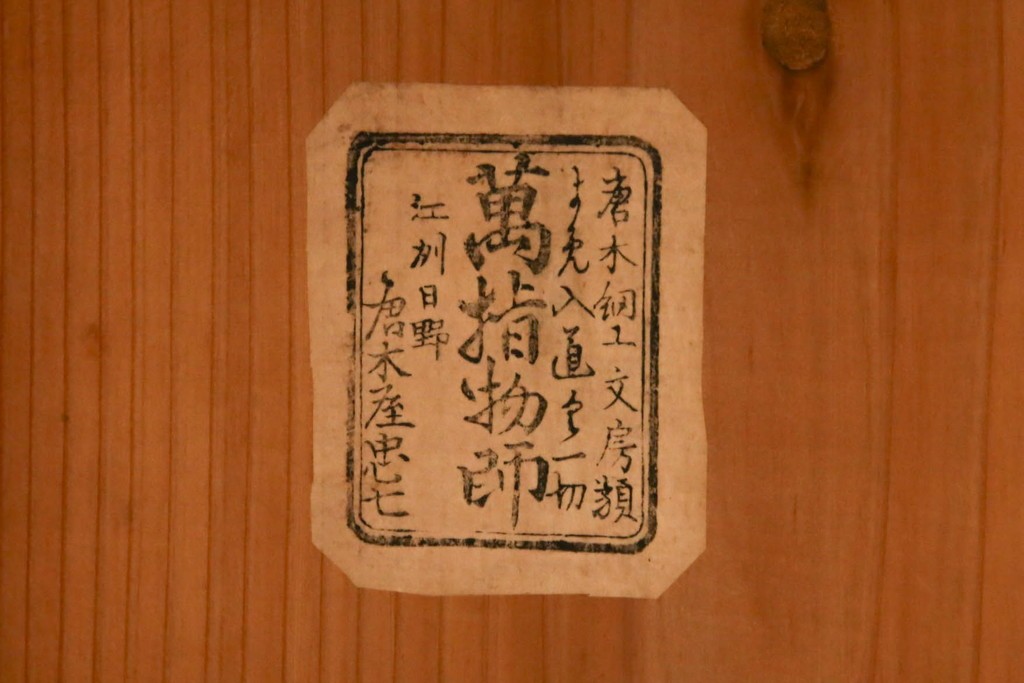 唐木細工文房類
よ免入道具一切
萬指物師
江州日野
唐木屋忠七